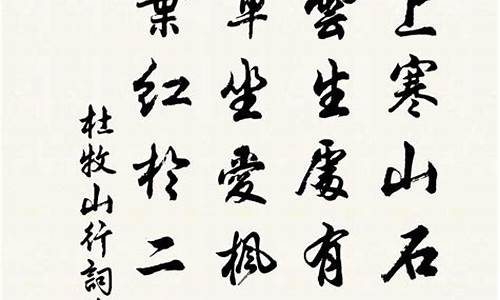 上寒山石
雲生處有
車坐愛楓
葉紅於二
杜牧山行詞